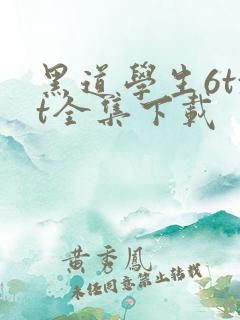 黑道學生6tx
t全集下載
黃秀鳳
未经同意禁止转载